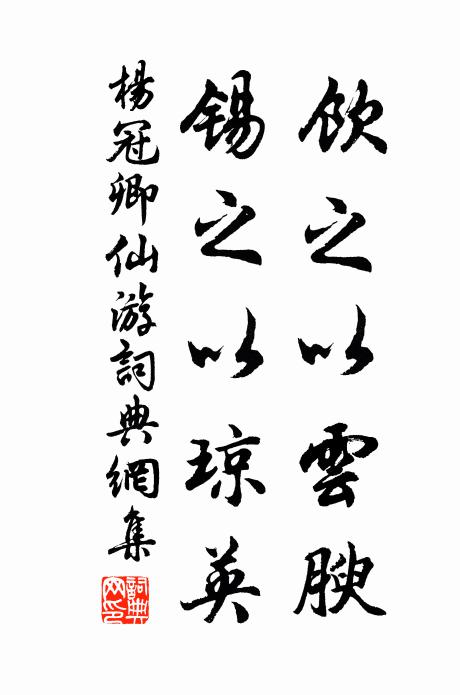 飲之以雲腴
錫之以琼英
楊冠卿仙游詞典網集
詞典網印